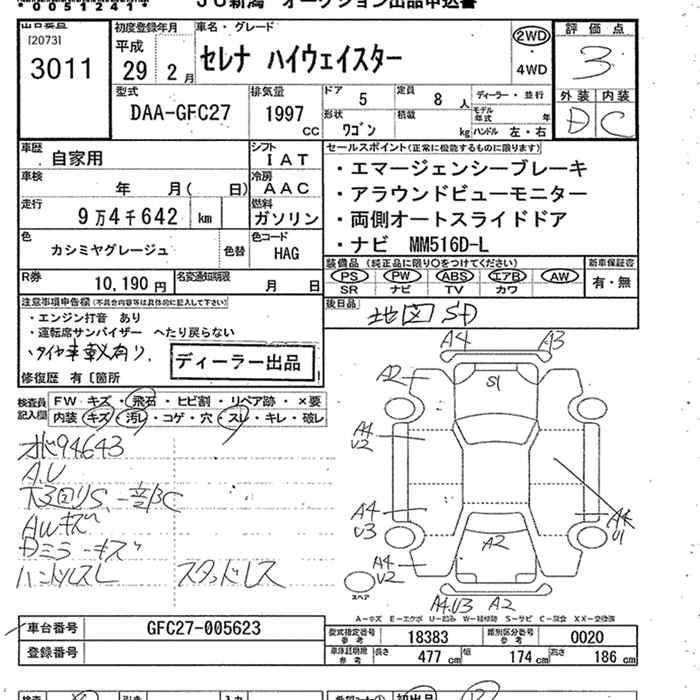 *00512414
JU新潟 オークション出品申込書
[2073]
3011
初度登録年月
平成
29 2月
車名・グレード
セレナ ハイウェイスター
2WD
4WD
評価点
3
外装 内装
D C
型式
DAA-GFC27
排気量
1997 CC
ドア 5
定員 8人
ディーラー・並行
形状 ワゴン
積載 kg
モデル年式 年
ハンドル 左・右
車歴 自家用
シフト IAT
車検 年 月( 日)
冷房 AAC
走行 9万4千642 km
燃料 ガソリン
色 カシミヤグレージュ 色替
色コード HAG
R券 10,190円
名変通知期限 月 日
セールスポイント(正常に機能するものに限ります)
・エマージェンシーブレーキ
・アラウンドビューモニター
・両側オートスライドドア
・ナビ MM516D-L
装備品(純正品に限り○をつけてください)
PS PW ABS エアB AW
SR ナビ TV カワ
新車保証書
有・無
後日品 地図SD
注意事項申告欄(不具合内容等は具体的に記入して下さい)
・エンジン打音 あり
・運転席サンバイザー へたり戻らない
ディーラー出品
修復歴 有〔箇所
検査員記入欄
FW キズ・飛石・ヒビ割・リペア跡・×要
内装・キズ・汚レ・コゲ・穴・スレ・キレ・破レ
94643
A.U
AWキズ
ハンドルスレ スタッドレス
A4 A3
A2 S1
A4 U2
A4 U3
A4 U2
A2
A4 U1
A4.U3 A2
スペア
A-キズ E-エクボ U-凹み W-補修跡 S-サビ C-腐食 XX-交換済
車台番号 GFC27-005623
登録番号
型式指定番号 参考 18383
類別区分番号 参考 0020
車体超過際 参考 長さ 477cm 幅 174cm 高さ 186cm